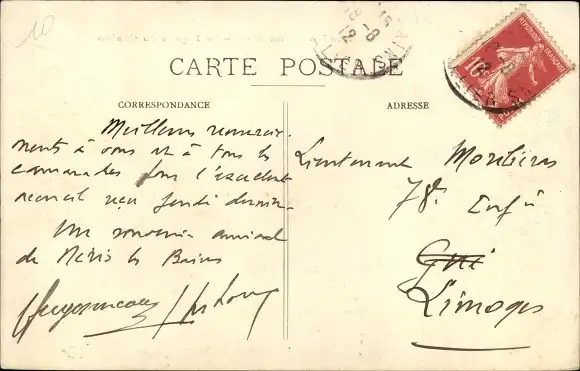 10
CARTE POSTALE
CORRESPONDANCE
Meilleurs remercie-
ments à vous et à tous les
camarades pour l'excellent
accueil reçu jeudi dernier.
Un souvenir amical
de Néris les Bains
ADRESSE
Lieutenant
78e Infie
Limoges
REPUBLIQUE FRANÇAISE
10c